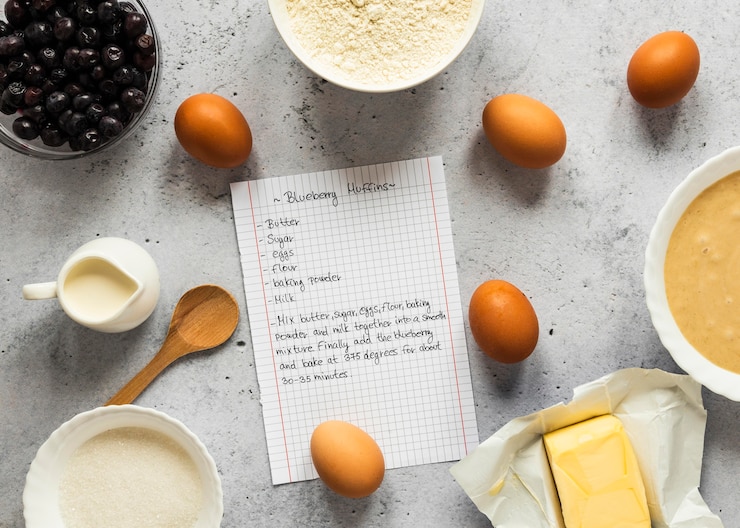 ~ Blueberry Muffins ~
- Butter
- Sugar
- eggs
- flour
- baking powder
- Milk
- Mix butter, sugar, eggs, flour, baking
powder and milk together into a smooth
mixture. Finally add the blueberry
and bake at 375 degrees for about
30-35 minutes.